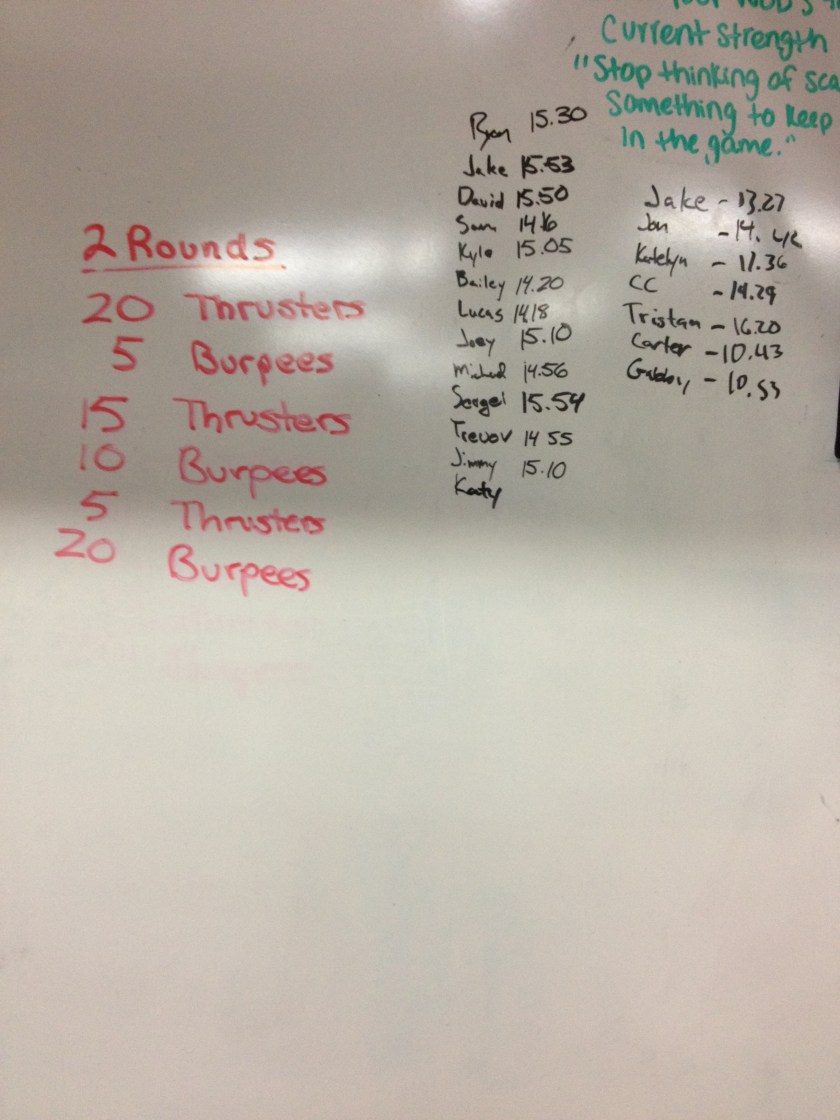 Your WOD's
Current Strength
"Stop thinking of sca
Something to keep
in the game."
2 Rounds
20 Thrusters
5 Burpees
15 Thrusters
10 Burpees
5 Thrusters
20 Burpees
Ryan 15.30
Jake 15.53
David 15.50
Sam 14.16
Kyle 15.05
Bailey 14.20
Lucas 14.18
Joey 15.10
Michael 14.56
Sergei 15.54
Trevor 14 55
Jimmy 15.10
Katy
Jake - 13.27
Jon - 14.
Katelyn - 11.36
CC - 14.29
Tristan - 16.20
Carter - 10.43
Gabby - 10.53